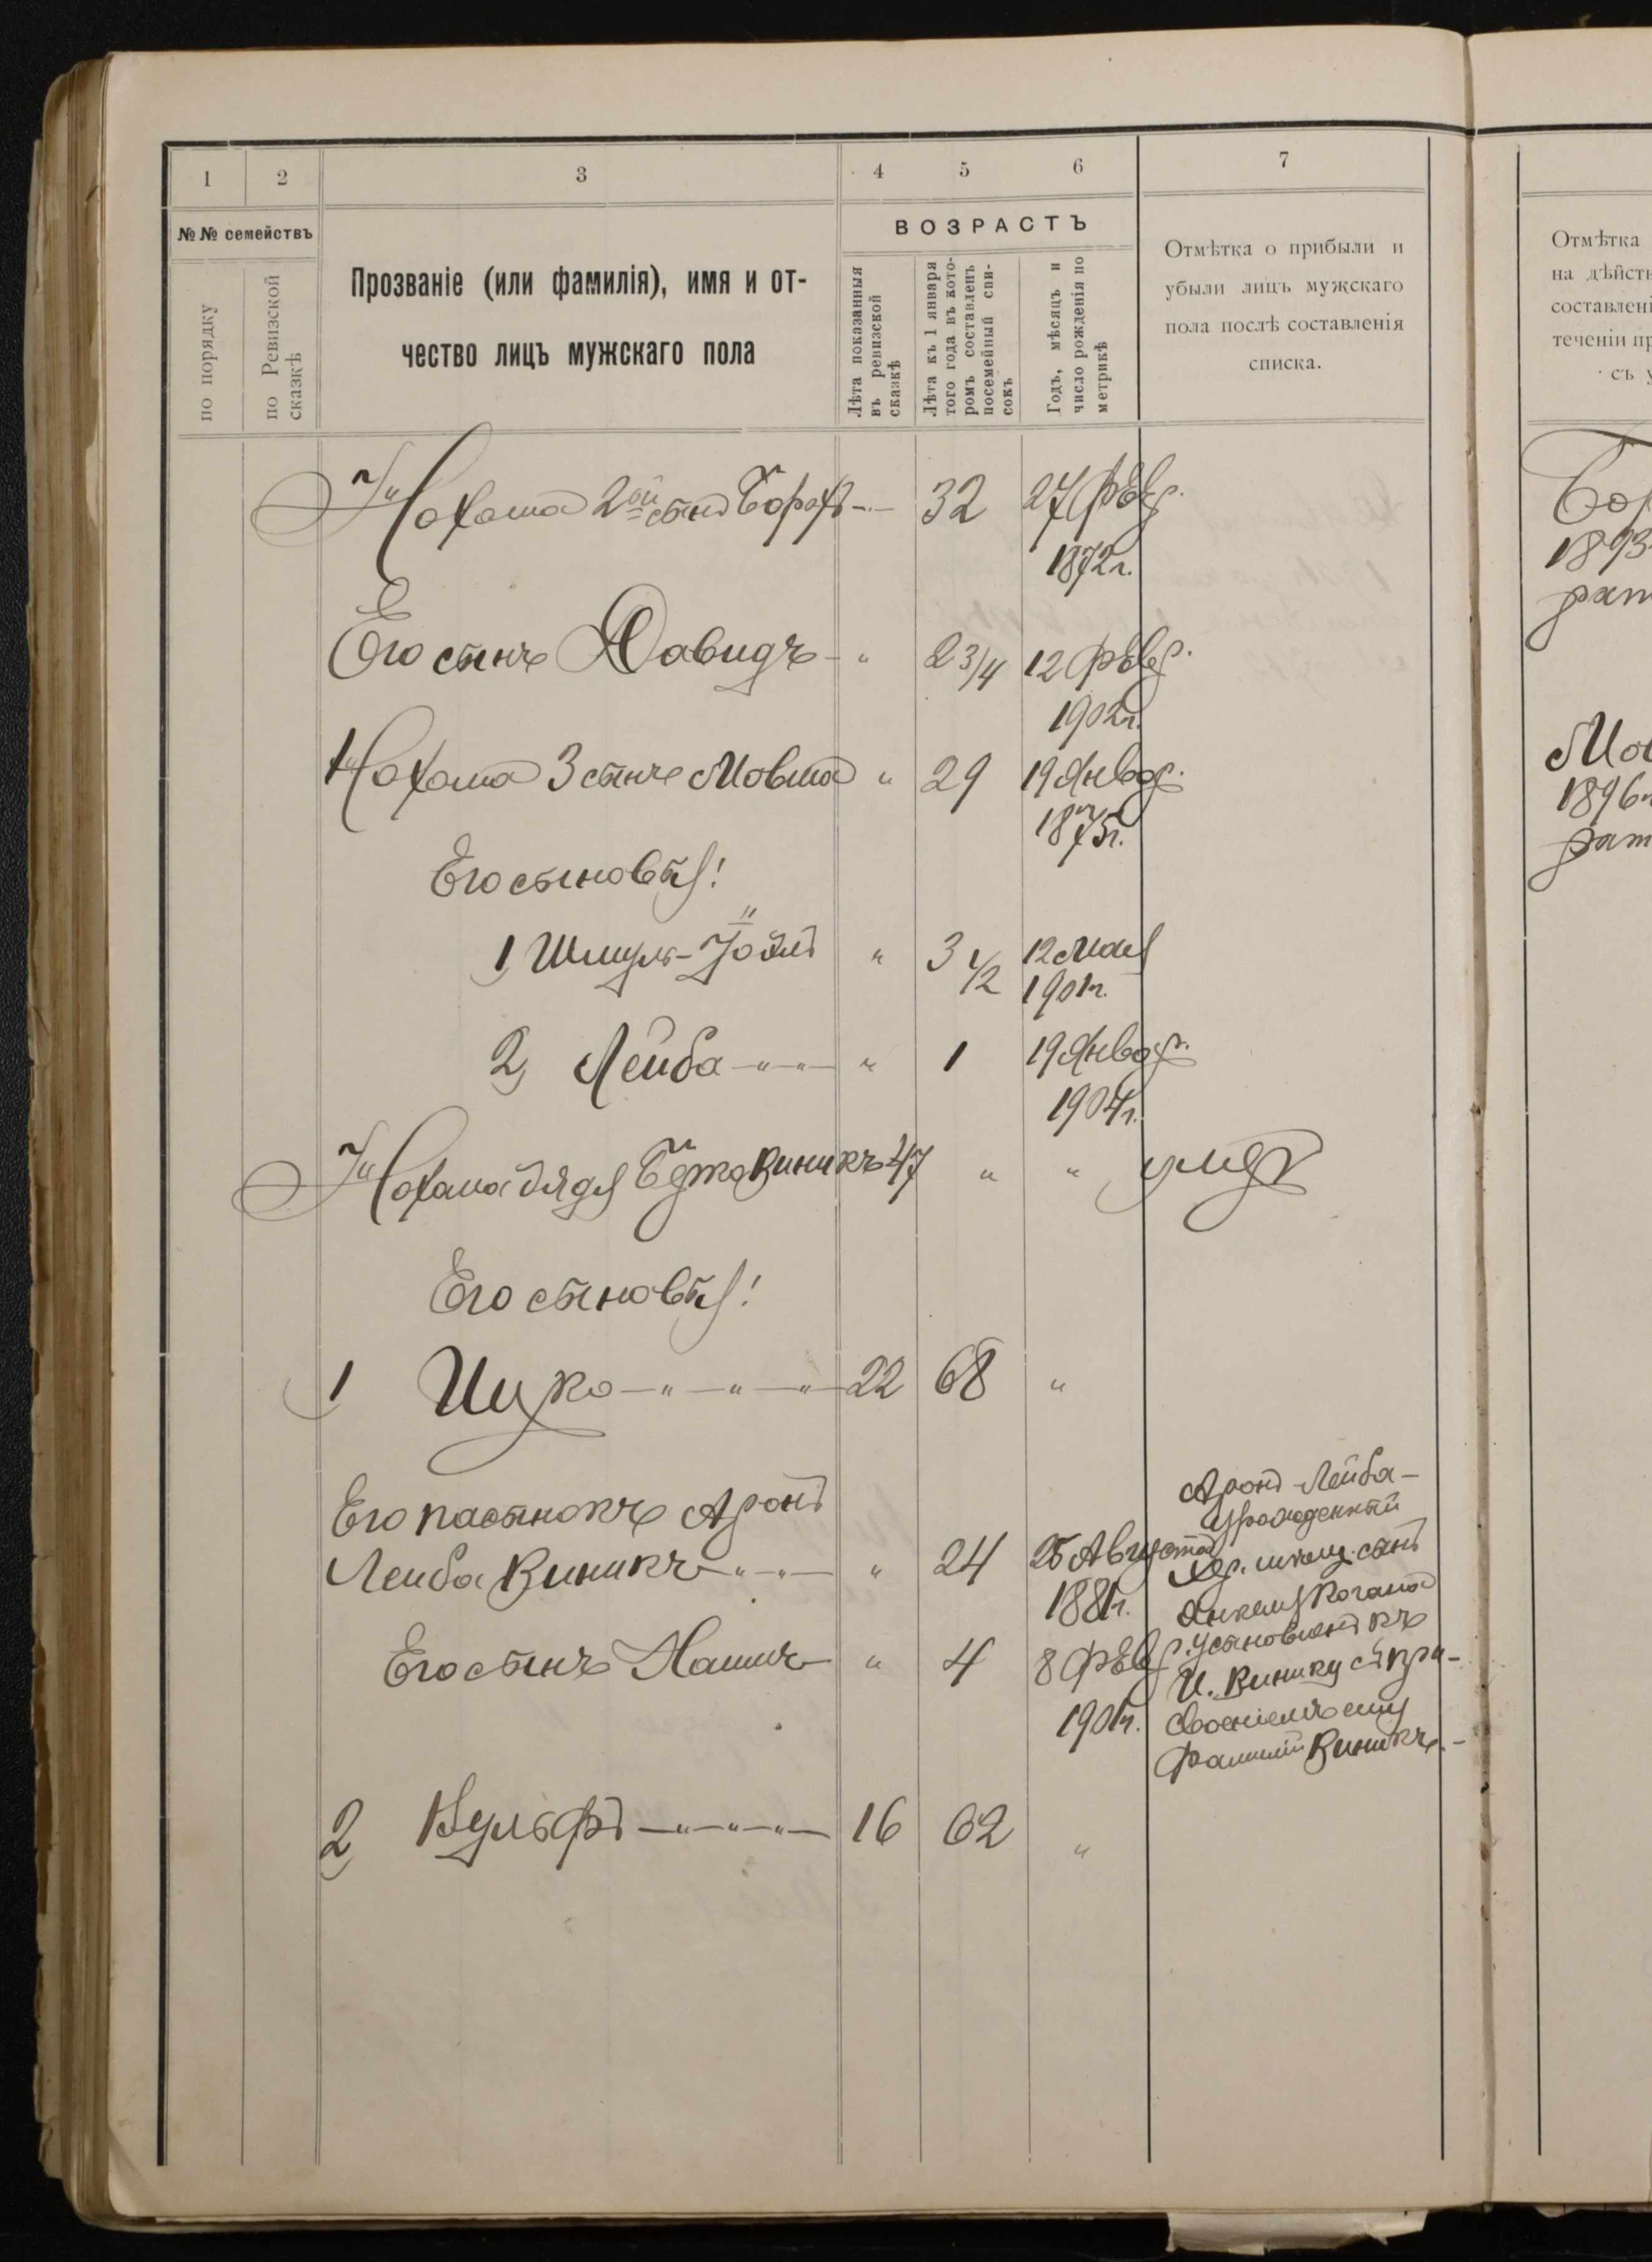 1 2 3 4 5 6 7
№ № семействъ
по порядку
по Ревизской сказкѣ
Прозваніе (или фамилія), имя и от-
чество лицъ мужскаго пола
ВОЗРАСТЪ
Лѣта показанныя
въ ревизской
сказкѣ
Лѣта къ 1 января
того года въ кото-
ромъ составленъ
посемейный спи-
сокъ
Годъ, мѣсяцъ и
число рожденія по
метрикѣ
Отмѣтка о прибыли и
убыли лицъ мужскаго
пола послѣ составленія
списка.
Нохома 2ой сынъ Борохъ 32 27 Февр.
1872 г.
Его сынъ Давидъ " 2 3/4 12 Февр.
1902 г.
Нохома 3 сынъ Мовша " 29 19 Январ.
1875 г.
Его сыновья:
1, Шмуль-Іойлъ " 3 1/2 12 Мая
1901 г.
2, Лейба " 1 19 Январ.
1904 г.
Нохома дядя Винникъ 47 " "
Его сыновья:
1 Ицко 22 68 "
Его пасынокъ Аронъ
Лейба Виникъ " 24 25 Августа
1881 г.
Его сынъ " 4 8 Февр.
1901 г.
Аронъ-Лейба-
Урожденный
сынъ
Когана
усыновленъ къ
И. Винику съ при-
своеніемъ ему
фамиліи Виникъ.-
2, Вульфъ 16 62 "
Отмѣтка
на дѣйств
составлені
теченіи пр
съ у
Бор
1893
рат
Мов
1896 г
рат